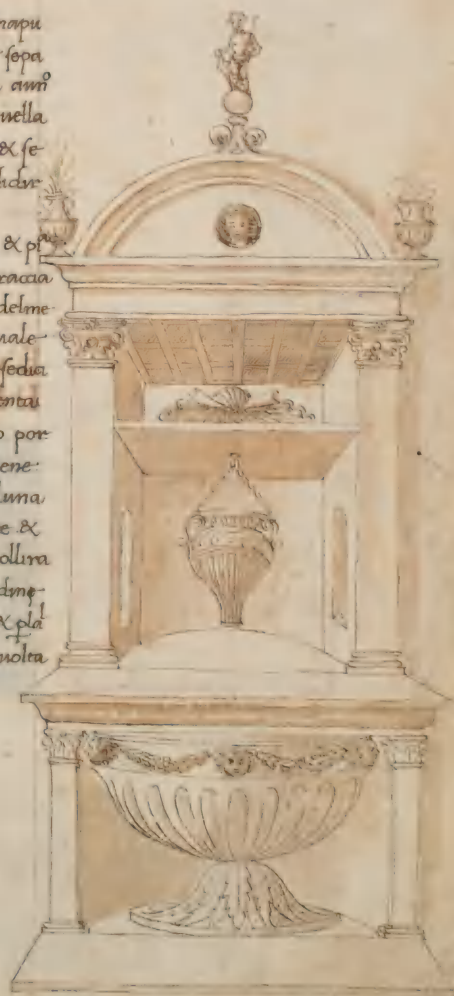 napu
sepa
ann̊
uella
& se
& p
raccia
delme
nale
sedia
entai
o por
ene
luna
e &
ollira
dmp
& pla
molta